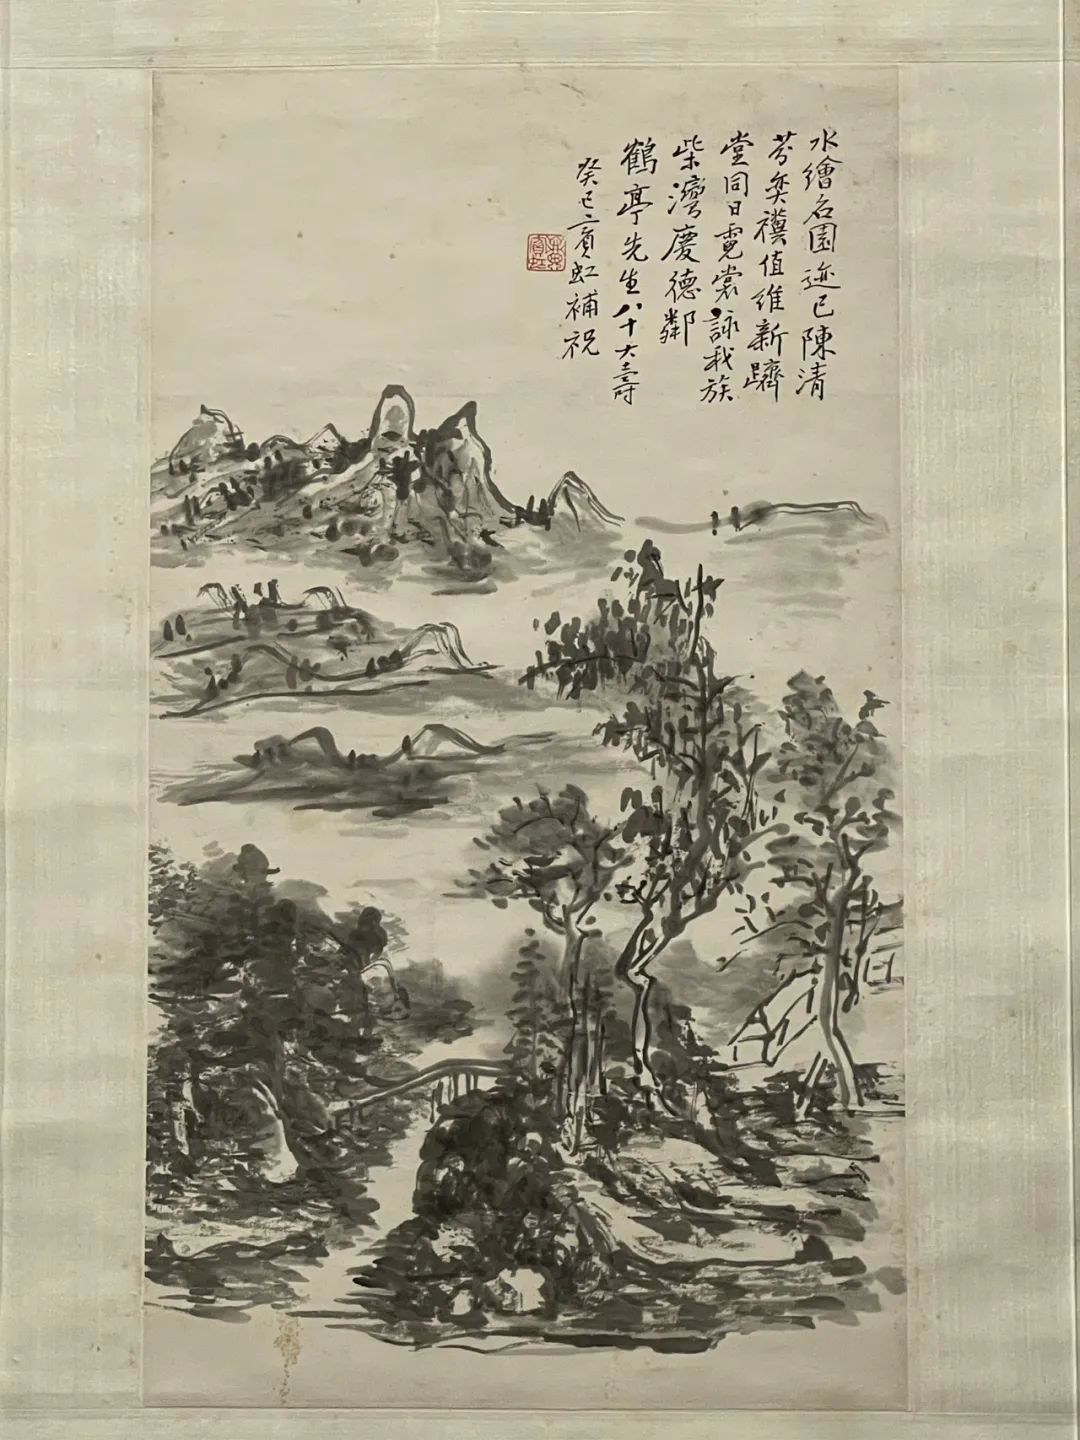 水繪名園迹已陳清
芬奕禩值維新躋
堂同日霓裳詠我族
柴灣慶德鄰
鶴亭先生八十大壽
癸巳賓虹補祝